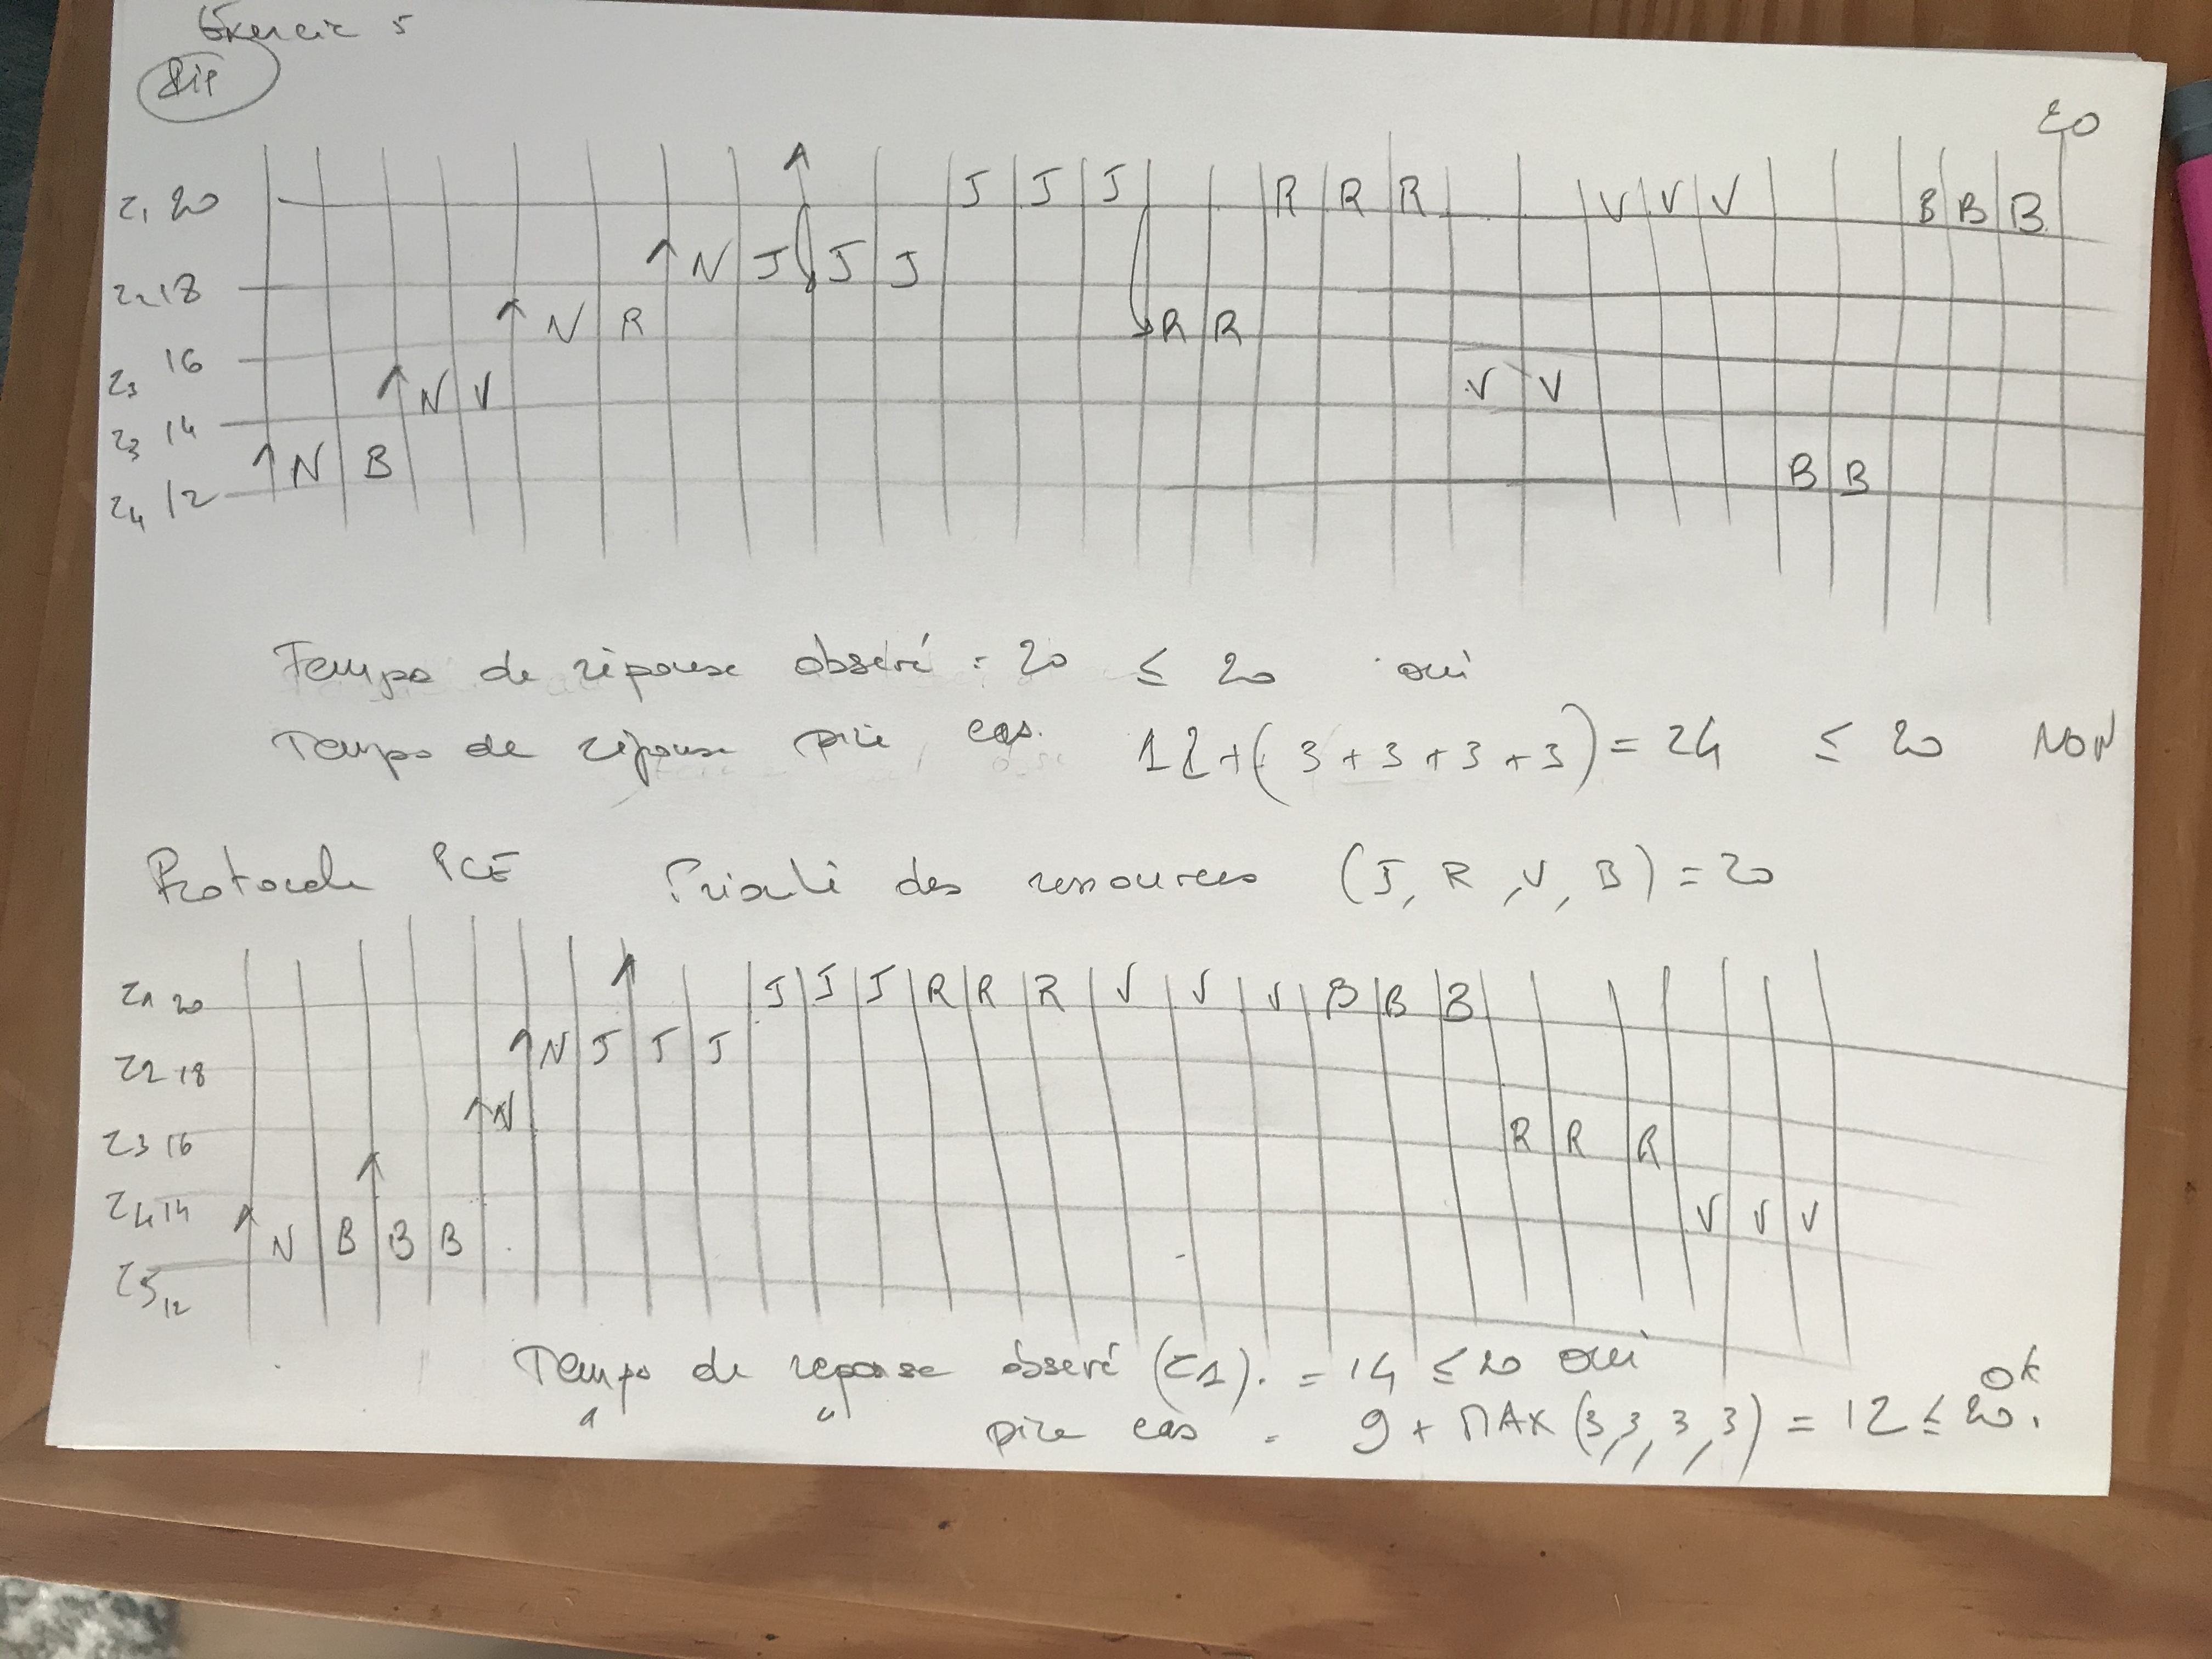 Exercice 5
PIP
20
z1 20 J J J R R R V V V B B B
z2 18 N J J J
N R R R
z3 16
N V V V
z3 14
N B B B
z4 12
Temps de réponse observé = 20 ≤ 20 oui
Temps de réponse pire cas. 12 + (3 + 3 + 3 + 3) = 24 ≤ 20 NON
Protocole PCE Priorité des ressources (J, R, V, B) = 20
z1 20 J J J R R R V V V B B B
N J J J
z2 18
N
z3 16 R R R
z4 14 V V V
N B B B
z5 12
Temps de réponse observé (z1). = 14 ≤ 20 oui
" " pire cas = 9 + MAX (3,3,3,3) = 12 ≤ 20. ok